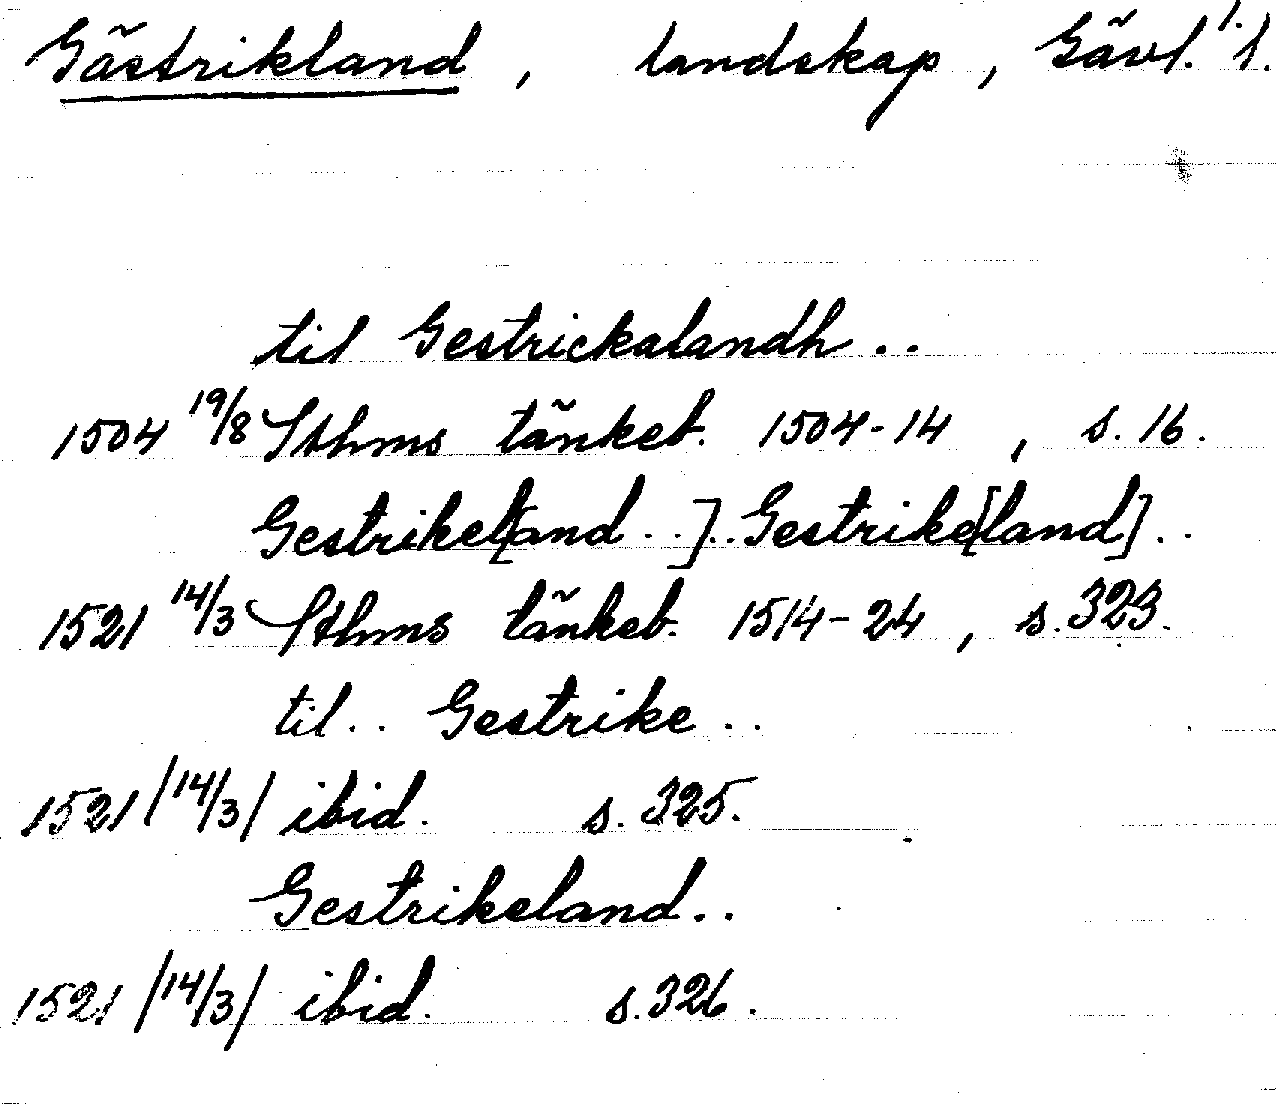 Gästrikland, landskap, Gävl. l. 1.
til Gestrickalandh..
1504 19/8 Sthms tänkeb. 1504-14, s. 16.
Gestrikel[and ..].. Gestrike[land]..
1521 14/3 Sthms tänkeb. 1514-24, s. 323.
til.. Gestrike..
1521 /14/3/ ibid. s. 325.
Gestrikeland..
1521 /14/3/ ibid. s. 326.